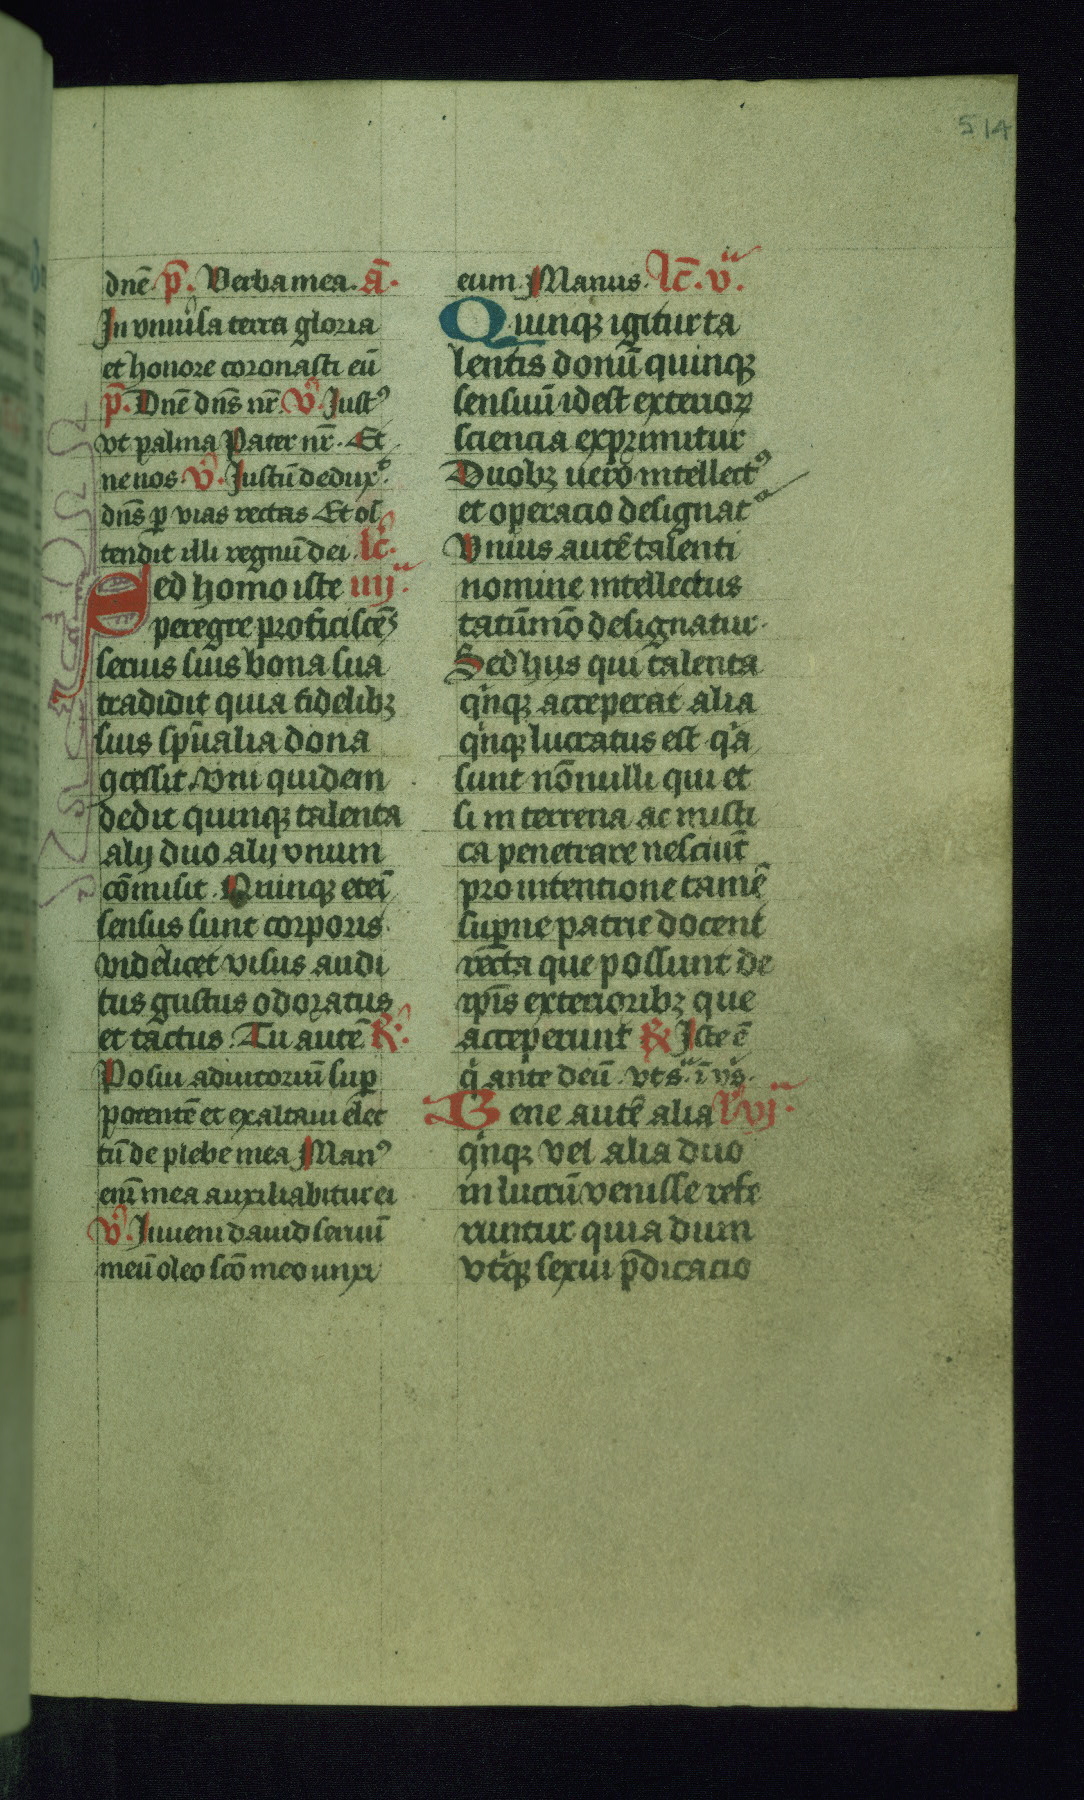 514
dnē. p̄. Verba mea. ā.
In vniuˀsa terra gloria
et honore coronasti eū
p̄. Dnē dns̄ nr̄. V̓. Justꝰ
vt palma Pater nr̄. Et
ne nos. V̓. Justū dedux̓.
dns̄ ꝑ vias rectas Et os
tendit illi regnū dei. lc̄.
Sed homo iste iiijᵃ.
peregre proficiscēs
seruis suis bona sua
tradidit quia fidelibꝫ
suis sp̄ualia dona
ꝯcessit. Vni quidem
dedit quinqꝫ talenta
alij duo alij vnum
cōmisit. Quinqꝫ eteī
sensus sunt corporis
videlicet visus audi
tus gustus odoratus
et tactus. Tu autē R̓:
Posui adiutoriū suꝑ
potentē et exaltaui elec
tū de plebe mea Manꝰ
eni mea auxiliabitur ei
V̓. Inueni dauid seruū
meū oleo scō meo unxi
eum. Manus. lc̄. vᵃ.
Quinqꝫ igitur ta
lentis donū quinqꝫ
sensuū idest exterioꝝ
sciencia exprimitur
Duobꝫ uero intellectꝰ
et operacio designatᵃ
Vnius autē talenti
nomine intellectus
tatūmō designatur.
Sed hijs qui talenta
qͥnqꝫ acceperat alia
qͥnqꝫ lucratus est qͥa
sunt nōnulli qui et
si in terrena ac misti
ca penetrare nesciūt
pro intentione tamē
suꝑne patrie docent
recta que possunt de
ip̄is exterioribꝫ que
acceperunt R̓ Iste ē
qͥ ante deū. vt sᵃ. ī vs̄.
Gene autē alia l̓ vjᵃ.
qͥnqꝫ vel alia duo
in lucrū venisse refe
runtur quia dum
vtͥqꝫ sexui p̄dicacio